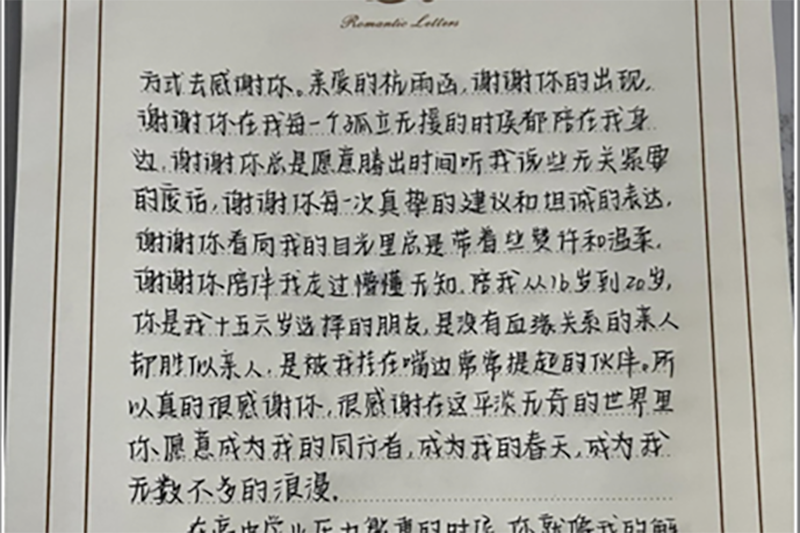 Romantic Letters
方式去感谢你。亲爱的杭雨函,谢谢你的出现,
谢谢你在我每一个孤立无援的时候都陪在我身
边,谢谢你总是愿意腾出时间听我说些无关紧要
的废话,谢谢你每一次真挚的建议和坦诚的表达,
谢谢你看向我的目光里总是带着些赞许和温柔,
谢谢你陪伴我走过懵懂无知,陪我从16岁到20岁,
你是我十五六岁选择的朋友,是没有血缘关系的亲人
却胜似亲人,是被我挂在嘴边常常提起的伙伴。所
以真的很感谢你,很感谢在这平淡无奇的世界里
你愿意成为我的同行者,成为我的春天,成为我
无数不多的浪漫。
在高中学业压力繁重的时候,你就像我的解